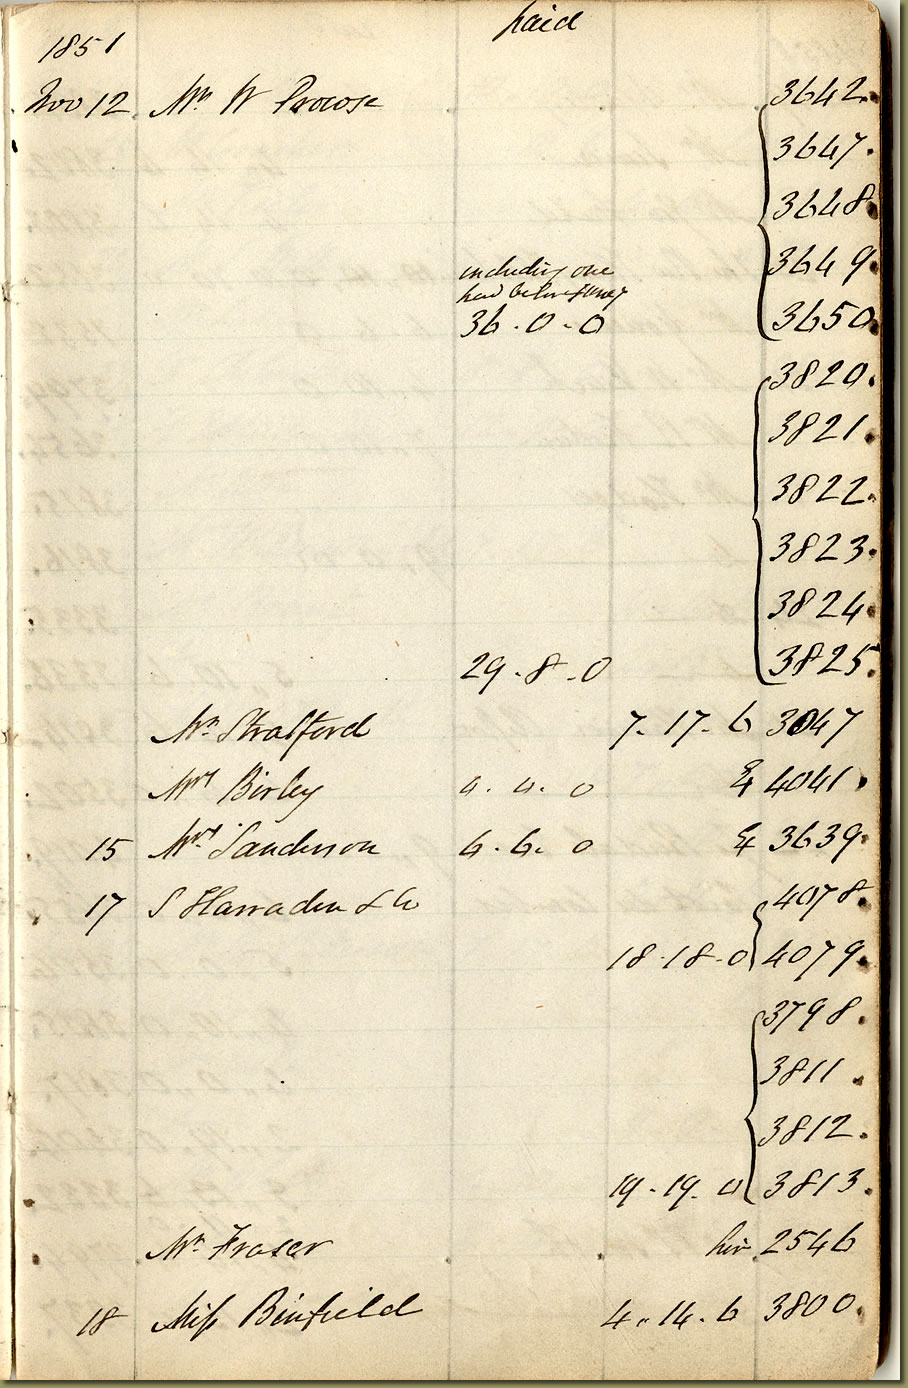 paid
1851
Nov 12 Mr W Prowse 3642.
3647.
3648.
including one 3649.
had before
36.0.0 3650
3820.
3821.
3822.
3823.
3824.
29.8.0 3825.
Mr Stratford 7.17.6 3047
Mrs Birley 4.4.0 4041.
15 Mrs Sanderson 6.6.0 3639.
17 S Harraden & Co 4078.
18.18.0 4079.
3798.
3811.
3812.
19.19.0 3813.
Mr Fraser hire 2546
18 Miss Binfield 4.14.6 3800.